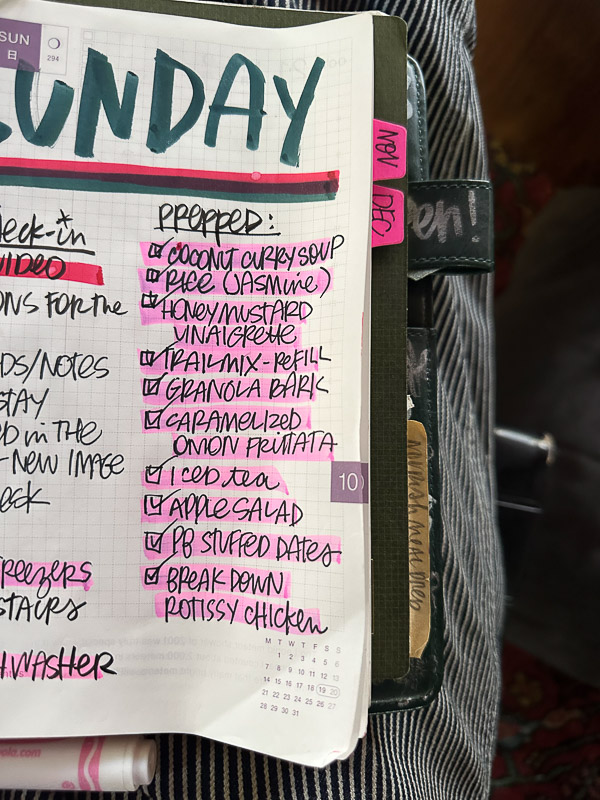 SUN
日
294
SUNDAY
NOV
DEC
en!
heck-in
VIDEO
ONS FOR the
DS/NOTES
STAY
ED in THE
-NEW IMAGE
esk
FREEZERS
STAIRS
HWASHER
PREPPED:
COCONUT CURRY SOUP
RICE (JASMINE)
HONEY MUSTARD
VINAIGRETTE
TRAIL MIX-REFILL
GRANOLA BARK
CARAMELIZED
ONION FRITTATA
ICED tea
APPLE SALAD
PB STUFFED DATES
BREAK DOWN
ROTISSY CHICKEN
10
M T W T F S S
1 2 3 4 5 6
7 8 9 10 11 12 13
14 15 16 17 18 19 20
21 22 23 24 25 26 27
28 29 30 31
ola.com